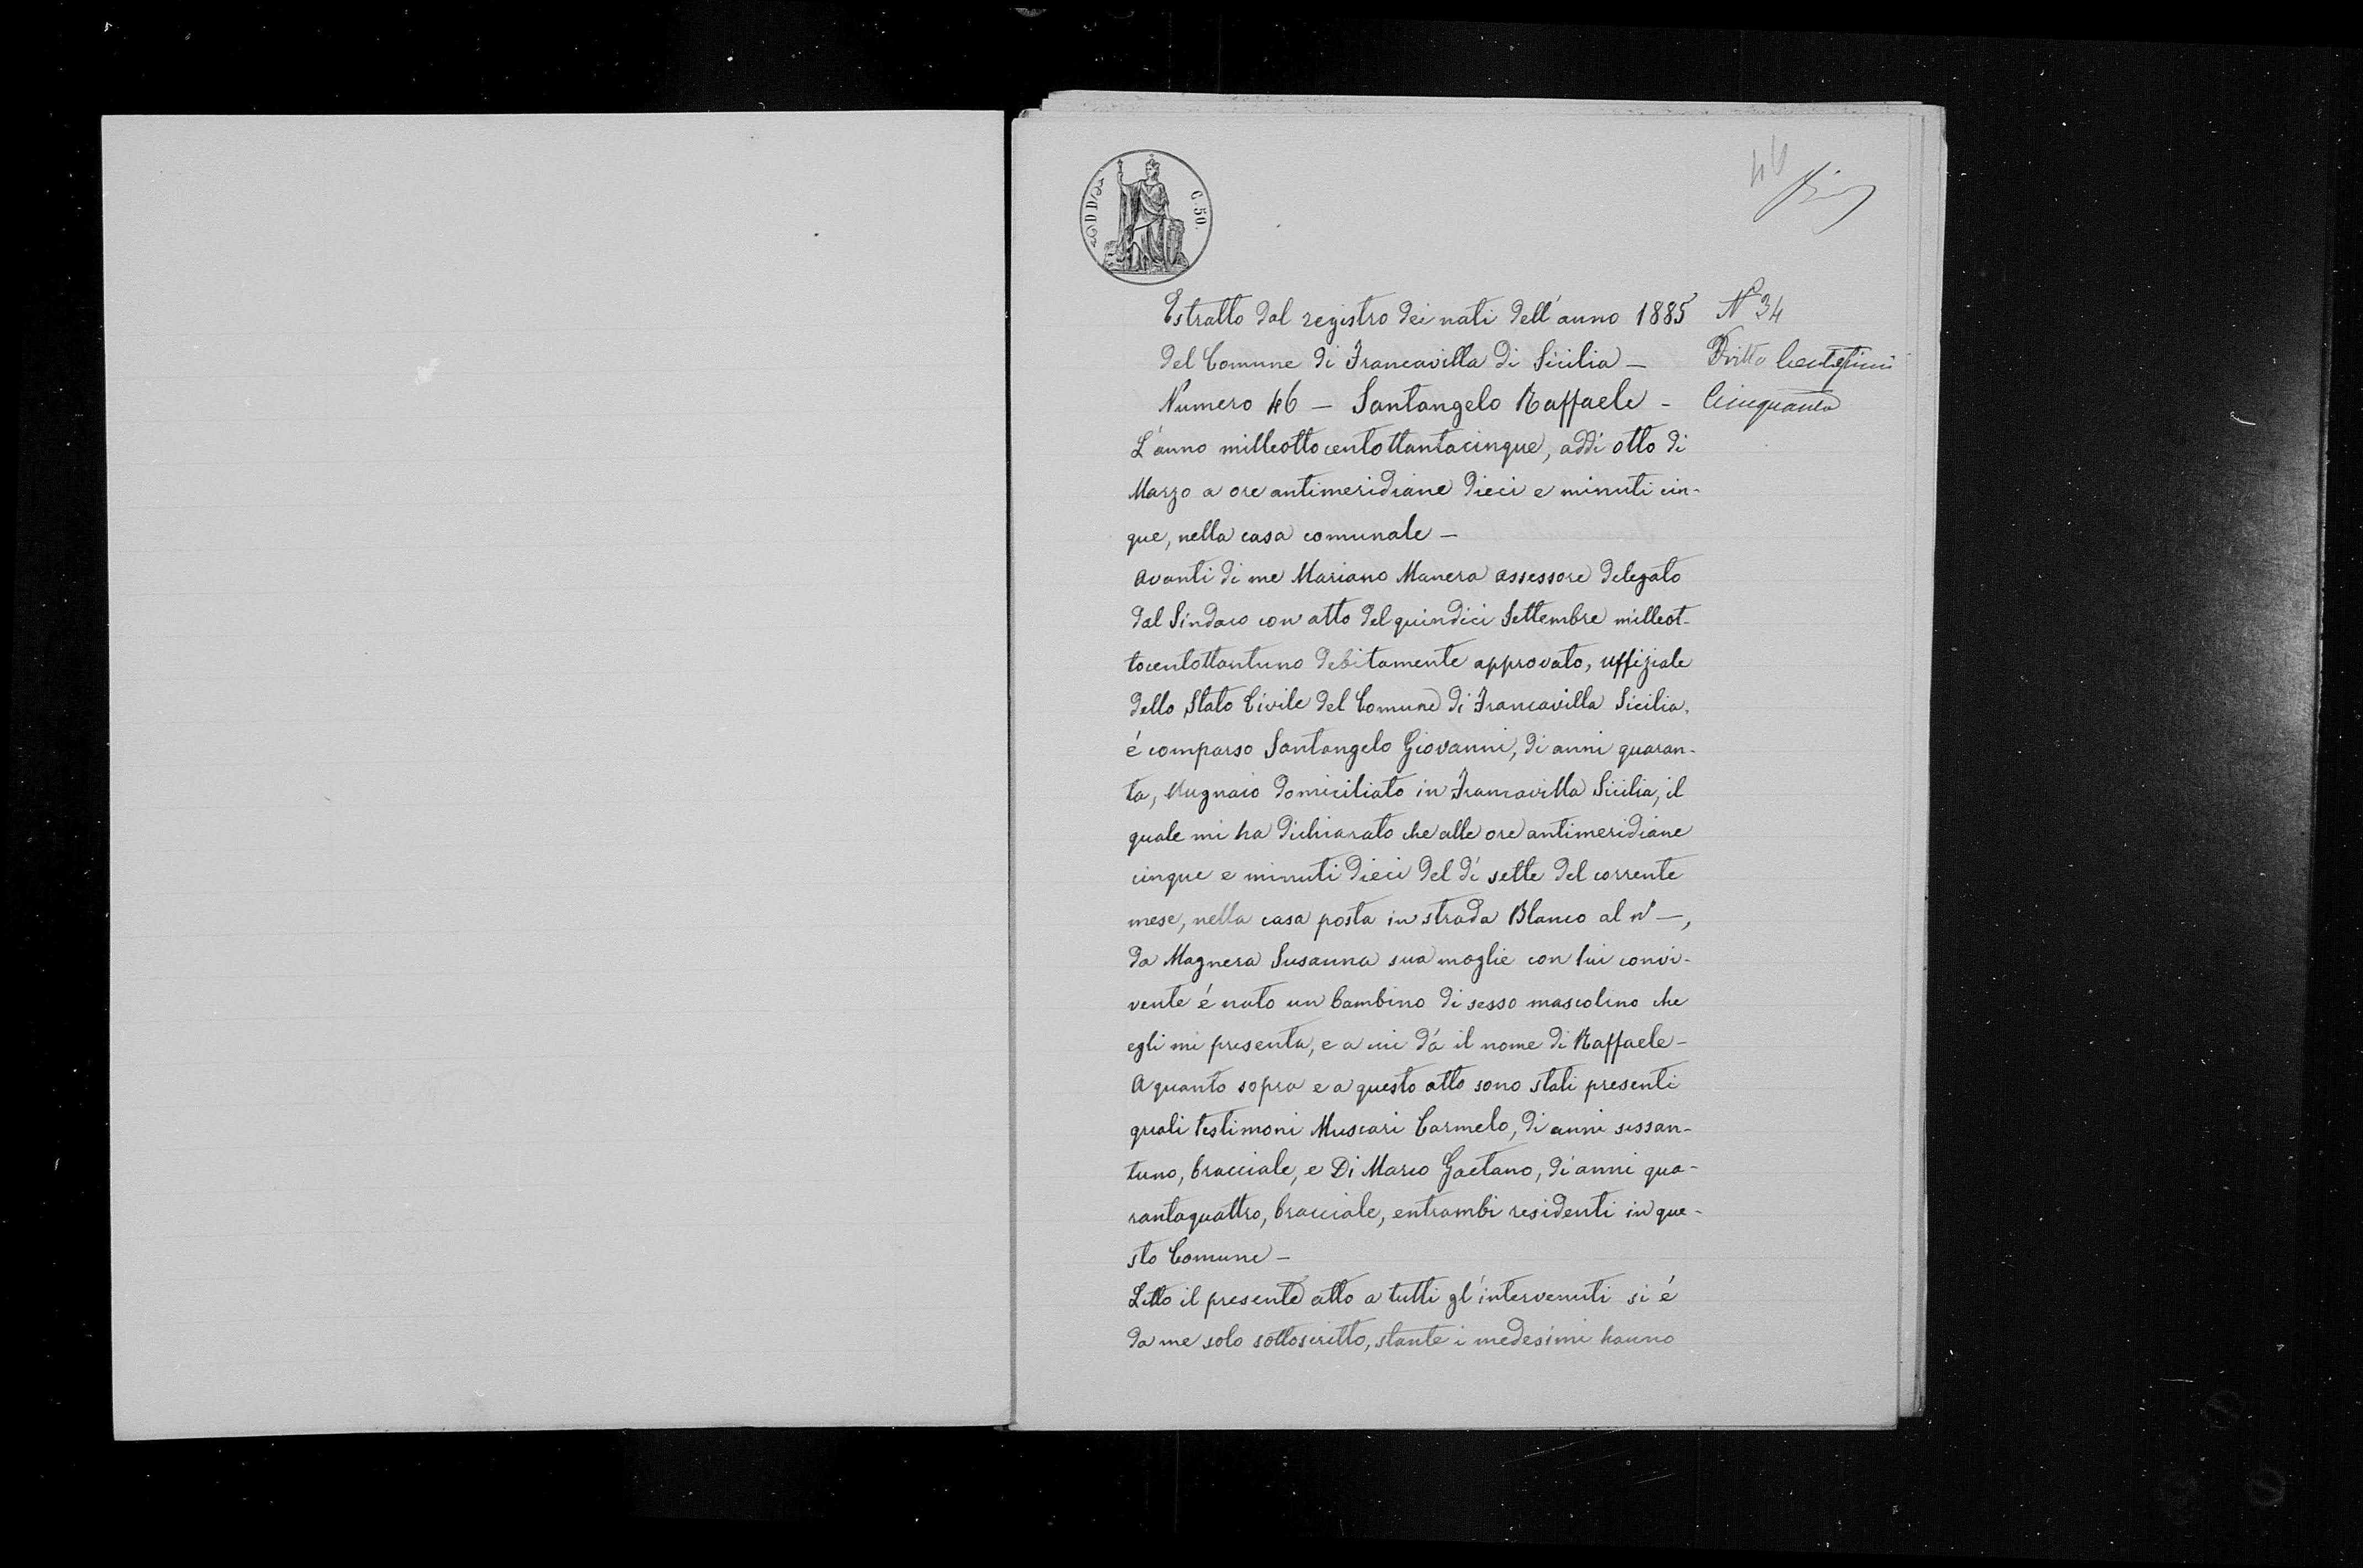 C. 50
46
Estratto dal registro dei nati dell'anno 1885
N° 34
del Comune di Francavilla di Sicilia —
Dritto Centesimi
Numero 46 — Santangelo Raffaele -
Cinquanta
L'anno milleottocentottantacinque, addì otto di
Marzo a ore antimeridiane dieci e minuti cin-
que, nella casa comunale —
Avanti di me Mariano Manera assessore delegato
dal Sindaco con atto del quindici Settembre milleot-
tocentottantuno debitamente approvato, uffiziale
dello Stato Civile del Comune di Francavilla Sicilia,
é comparso Santangelo Giovanni, di anni quaran-
ta, Mugnaio domiciliato in Francavilla Sicilia, il
quale mi ha dichiarato che alle ore antimeridiane
cinque e minuti dieci del dí sette del corrente
mese, nella casa posta in strada Blanco al n° —,
da Magnera Susanna sua moglie con lui convi-
vente é nato un bambino di sesso mascolino che
egli mi presenta, e a cui dá il nome di Raffaele -
A quanto sopra e a questo atto sono stati presenti
quali testimoni Muscari Carmelo, di anni sessan-
tuno, bracciale, e Di Marco Gaetano, di anni qua-
rantaquattro, bracciale, entrambi residenti in que-
sto Comune —
Letto il presente atto a tutti gl'intervenuti si é
da me solo sottoscritto, stante i medesimi hanno